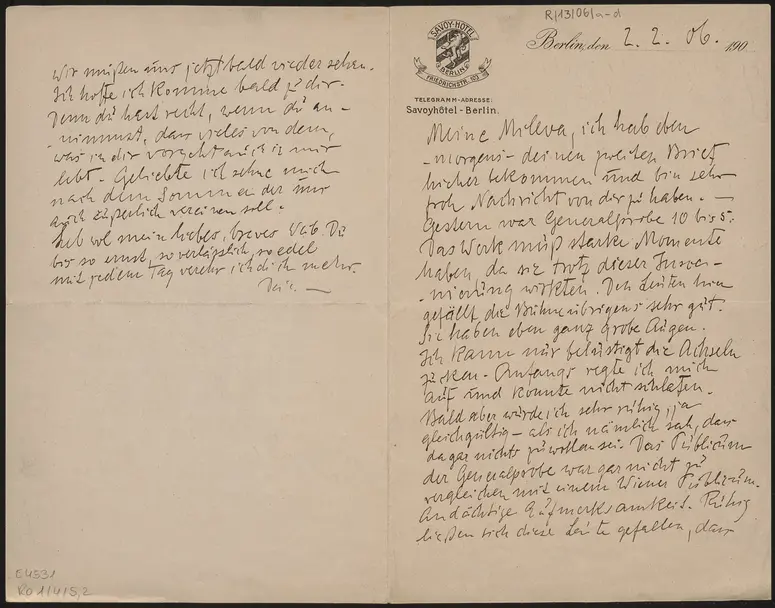 R/13/06/a-d
SAVOY-HOTEL
BERLIN
FRIEDRICHSTR. 103
TELEGRAMM-ADRESSE:
Savoyhôtel-Berlin.
Berlin, den 2. 2. 06. 190
Meine Mileva, ich hab eben
-morgens- deinen zweiten Brief
hieher bekommen und bin sehr
froh Nachricht von dir zu haben. —
Gestern war Generalprobe 10 bis 5.
Das Werk muß starke Momente
haben, da sie trotz dieser Insce-
-nierung wirkten. Den Leuten hier
gefällt die Bühne übrigens sehr gut.
Sie haben eben ganz grobe Augen.
Ich kann nur belustigt die Achseln
zucken. Anfangs regte ich mich
auf und konnte nicht schlafen.
Bald aber wurde ich sehr ruhig, ja
gleichgültig – als ich nämlich sah, dass
da gar nichts zu wollen sei. Das Publicum
der Generalprobe war gar nicht zu
vergleichen mit einem Wiener Publicum.
Andächtige Aufmerksamkeit. Ruhig
ließen sich diese Leute gefallen, dass
wir müßen uns jetzt bald wieder sehen.
Ich hoffe ich komme bald zu dir.
Denn du hast recht, wenn du an-
-nimmst, dass vieles von dem,
was in dir vorgeht auch in mir
lebt. Geliebte ich sehne mich
nach dem Sommer der uns
auch äußerlich vereinen soll.
Leb wol mein liebes, braves Weib. Du
bis so ernst, so verläßlich, so edel
mit jedem Tag verehr ich dich mehr.
Dein. —
E4531
RO 1/4/5,2